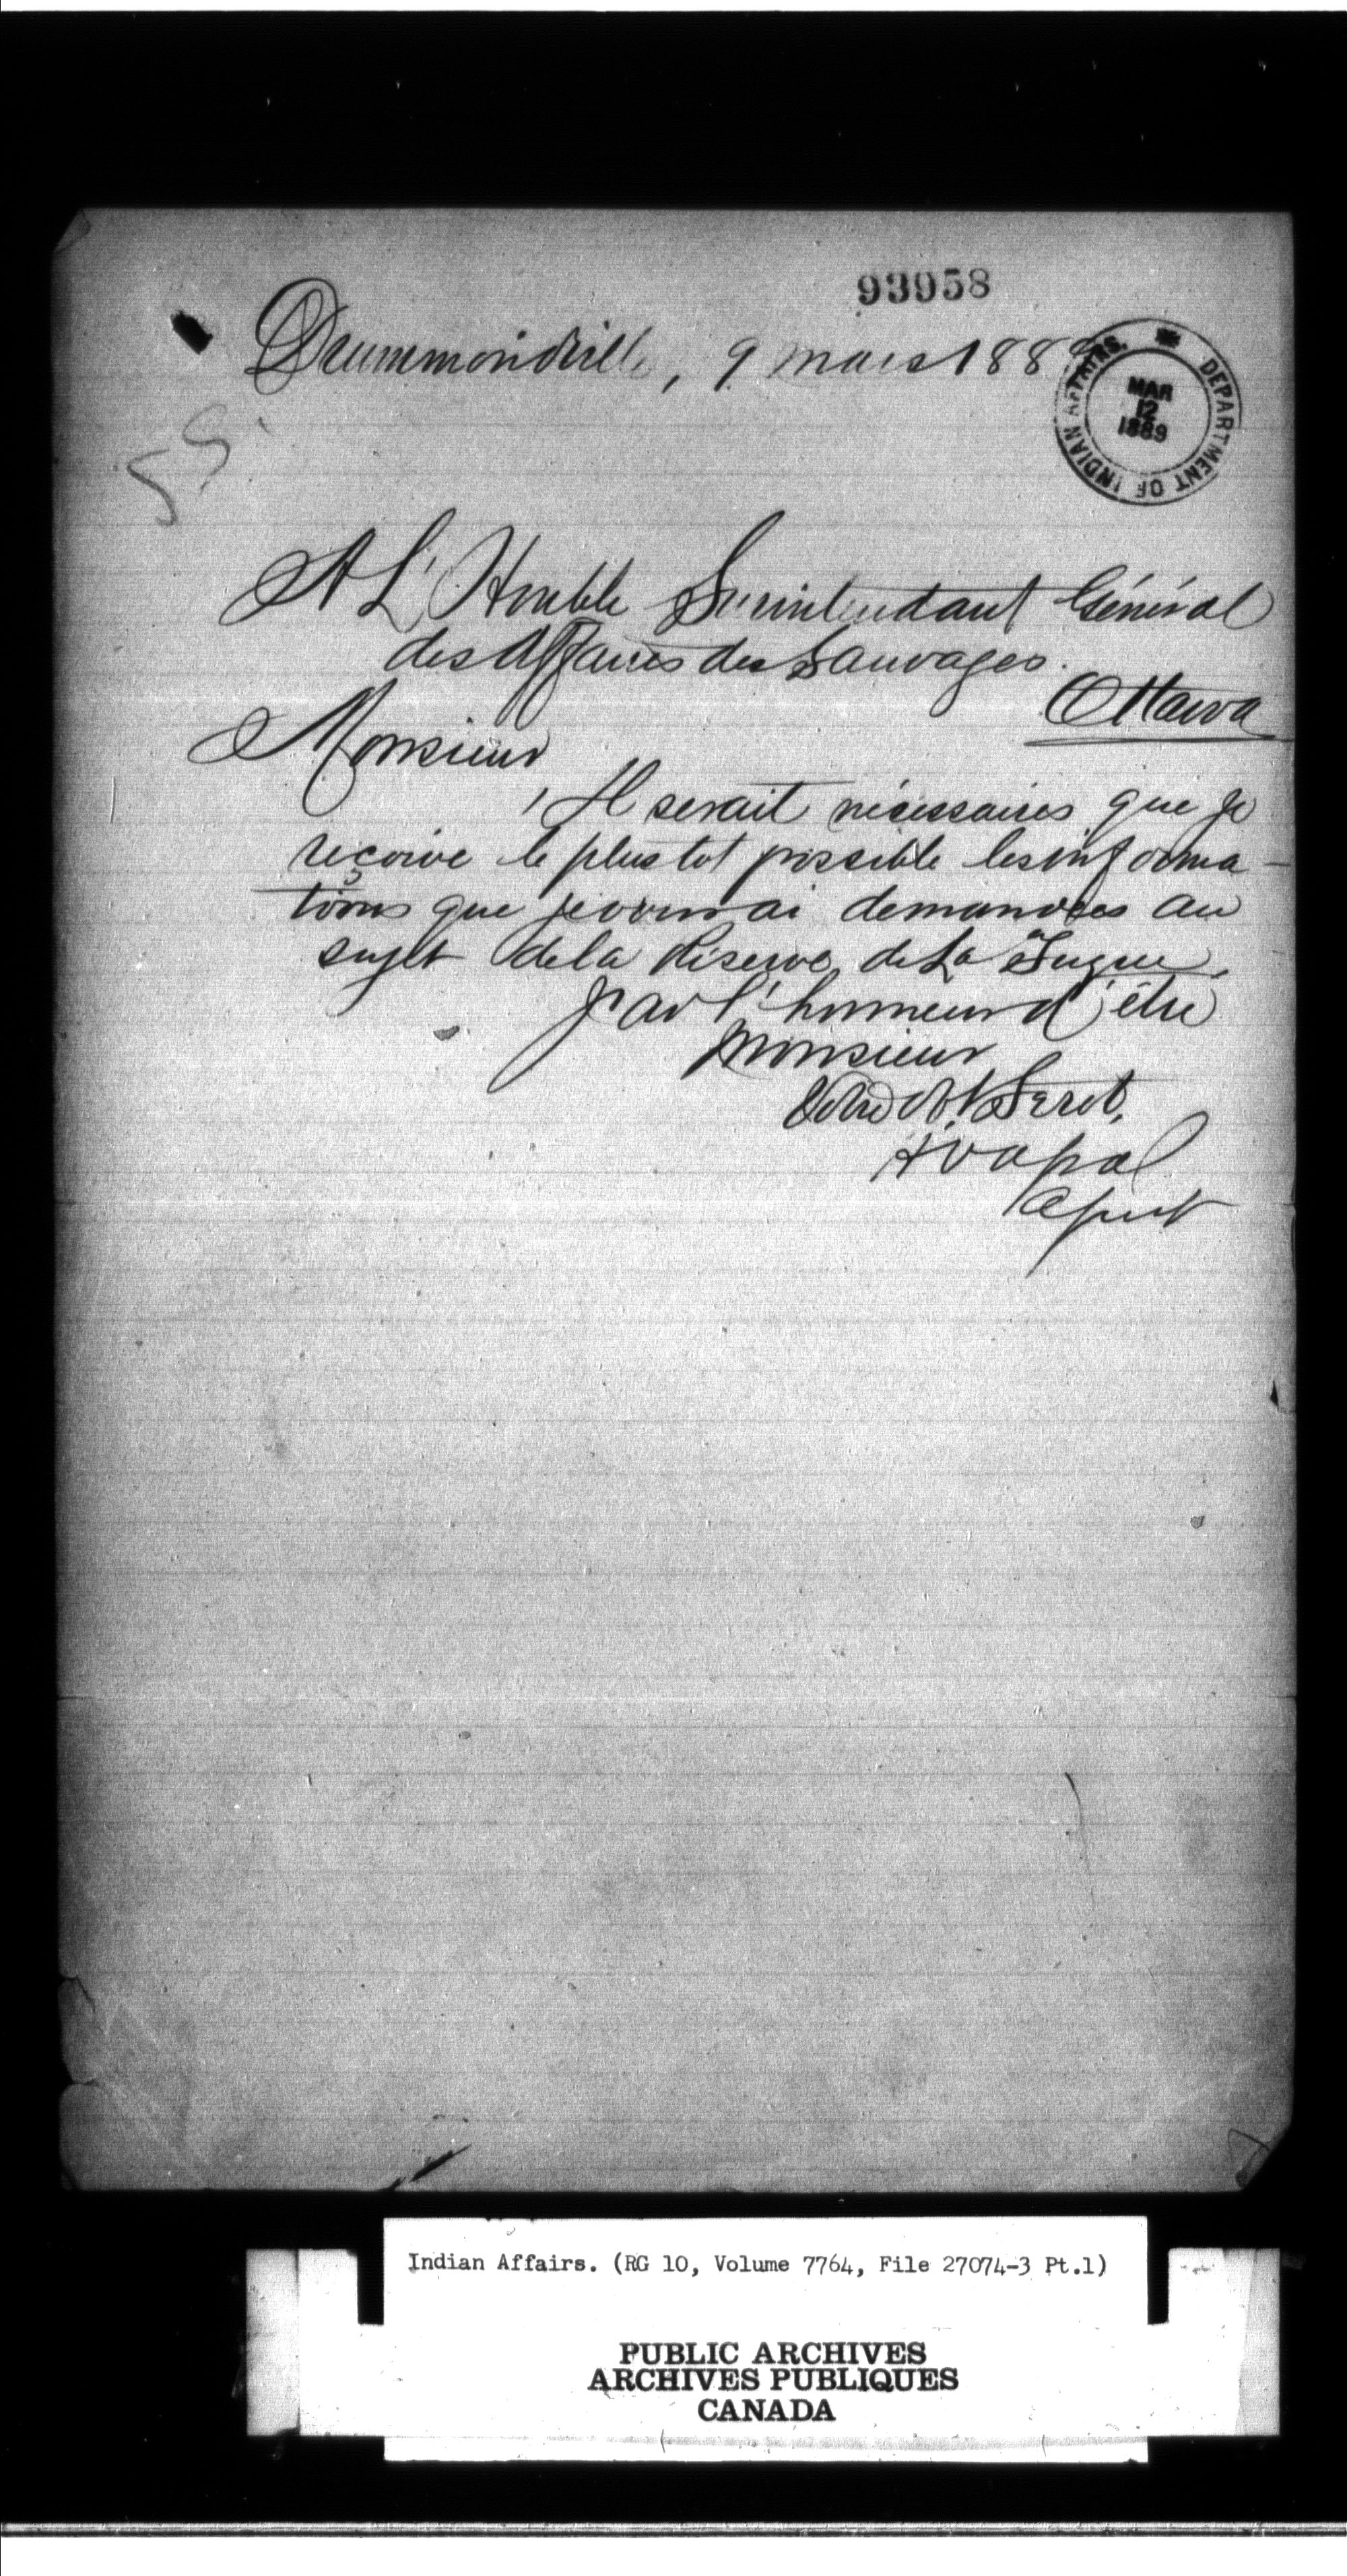 93958
Drummondville, 9 mars 1889
DEPARTMENT OF INDIAN AFFAIRS.
MAR
12
1889
55
A L'Honble Surintendant Général
des Affaires des Sauvages.
Ottawa
Monsieur
Il serait nécessaires que je
reçoive le plus tot possible les informa-
tions que je vous ai demandées au
sujet de la Réserve de La Tuque.
J'ai l'honneur d'être
Monsieur
Votre Ob Servt,
Agent
Indian Affairs. (RG 10, Volume 7764, File 27074-3 Pt.1)
PUBLIC ARCHIVES
ARCHIVES PUBLIQUES
CANADA